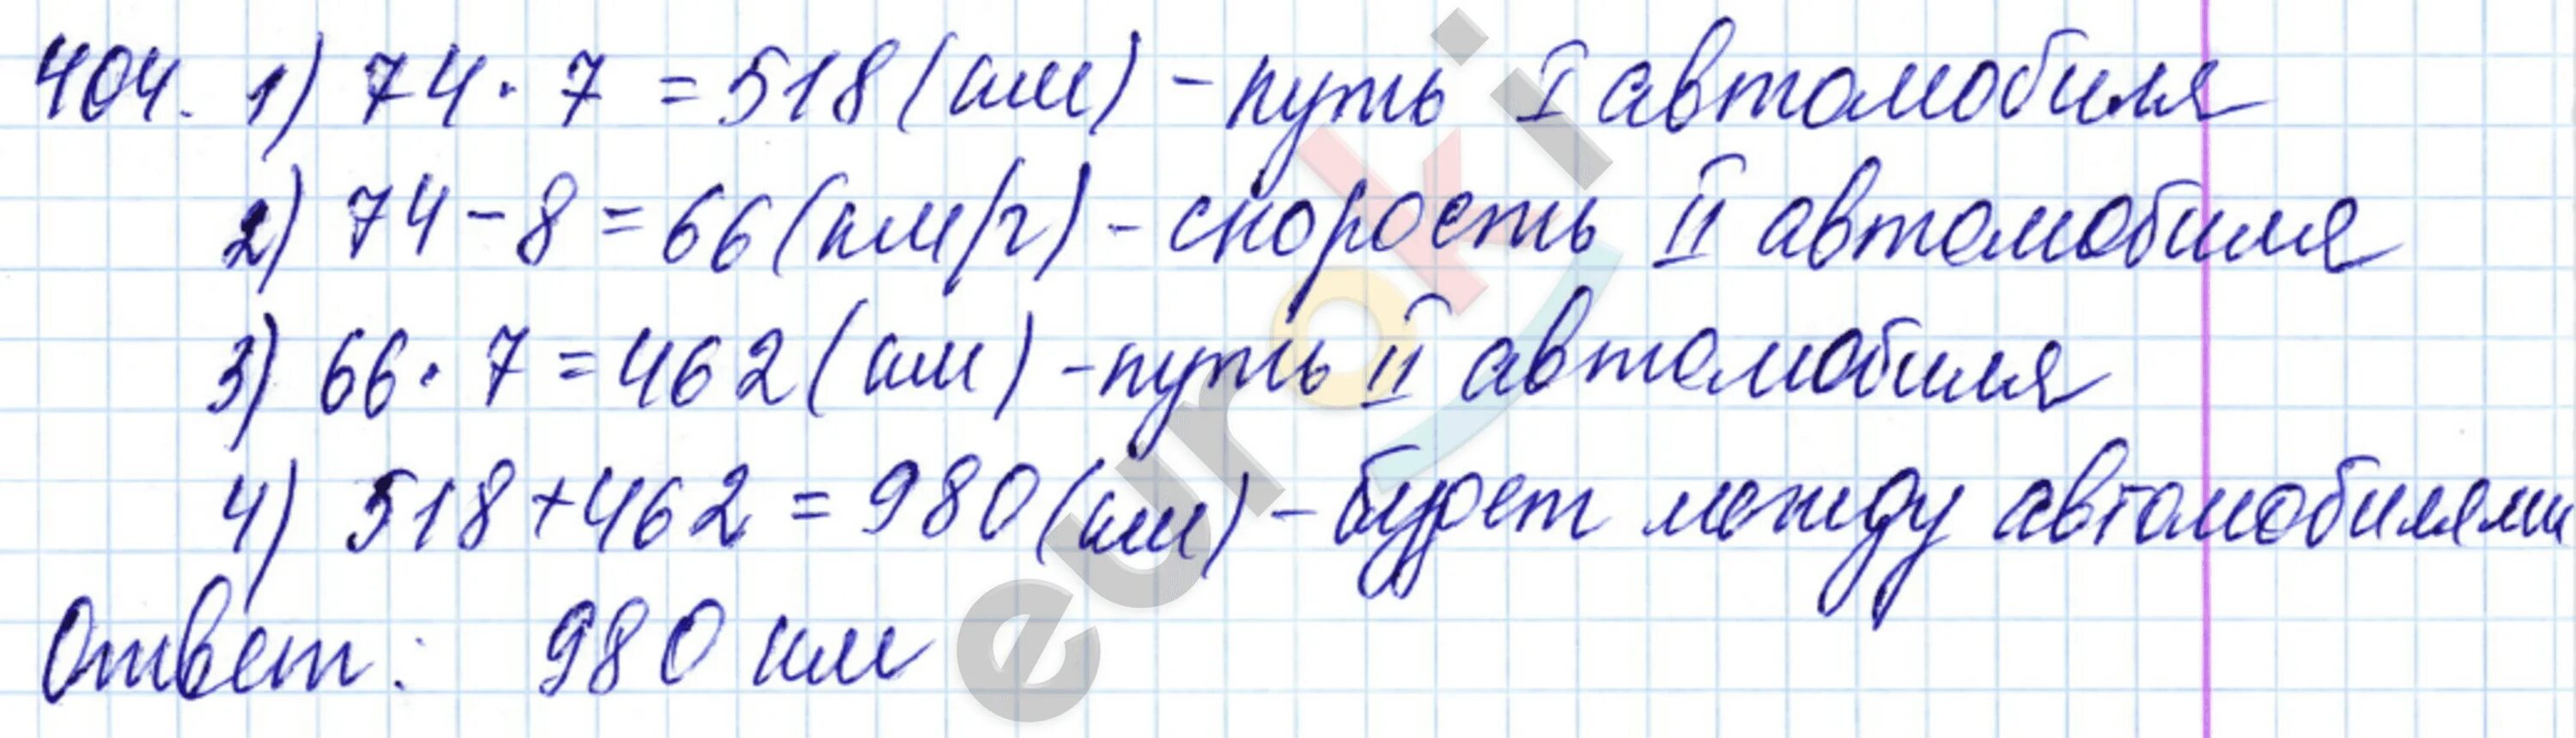 404. 1) 74 · 7 = 518 (км) - путь I автомобиля
2) 74 - 8 = 66 (км/ч) - скорость II автомобиля
3) 66 · 7 = 462 (км) - путь II автомобиля
4) 518 + 462 = 980 (км) - будет между автомобилями
Ответ: 980 км
euroki